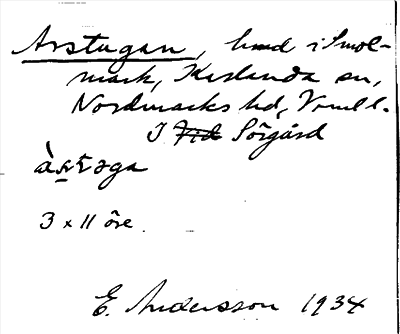 Arstugan, hmd i Smol-
mark, Karlanda sn,
Nordmarks hd, Vrml l.
I Vid Sörgård
àrstoga
3 x 11 öre
E. Andersson 1934